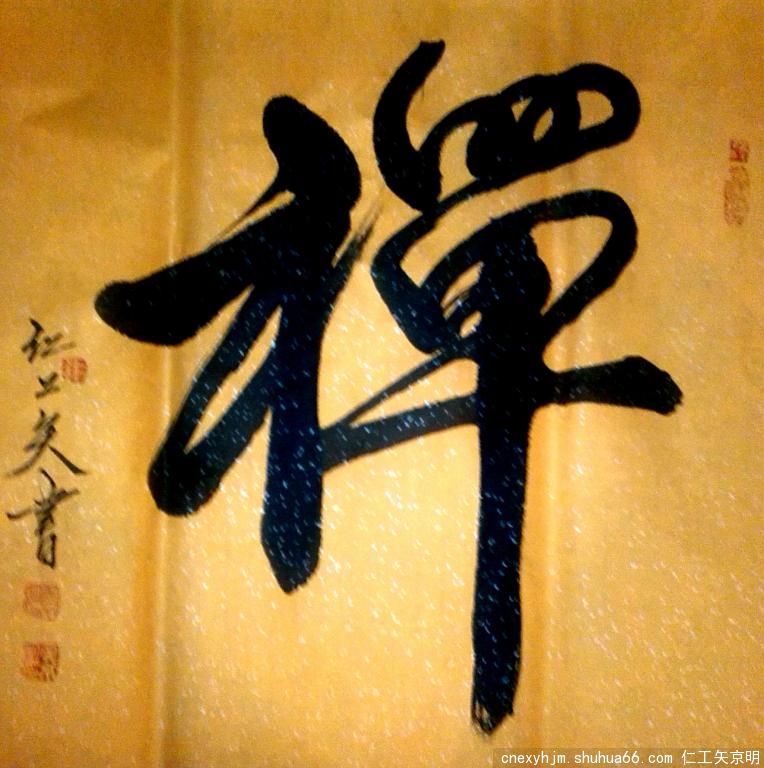 禪
仁工矢書
cnexyhjm.shuhua66.com 仁工矢京明